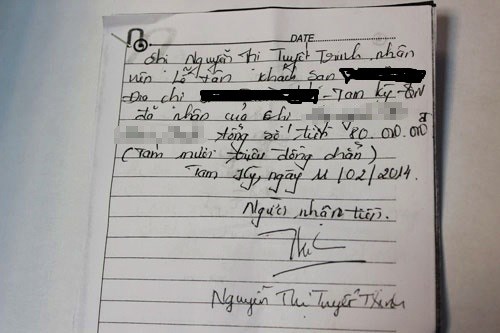 DATE
Chị Nguyễn Thị Tuyết Trinh, nhân
viên Lễ tân khách sạn
Địa chỉ - Tam Kỳ - QN
đã nhận của chị
tổng số tiền 80.000.000đ
(Tám mươi triệu đồng chẵn)
Tam Kỳ, ngày 11/02/2014.
Người nhận tiền.
Nguyễn Thị Tuyết Trinh